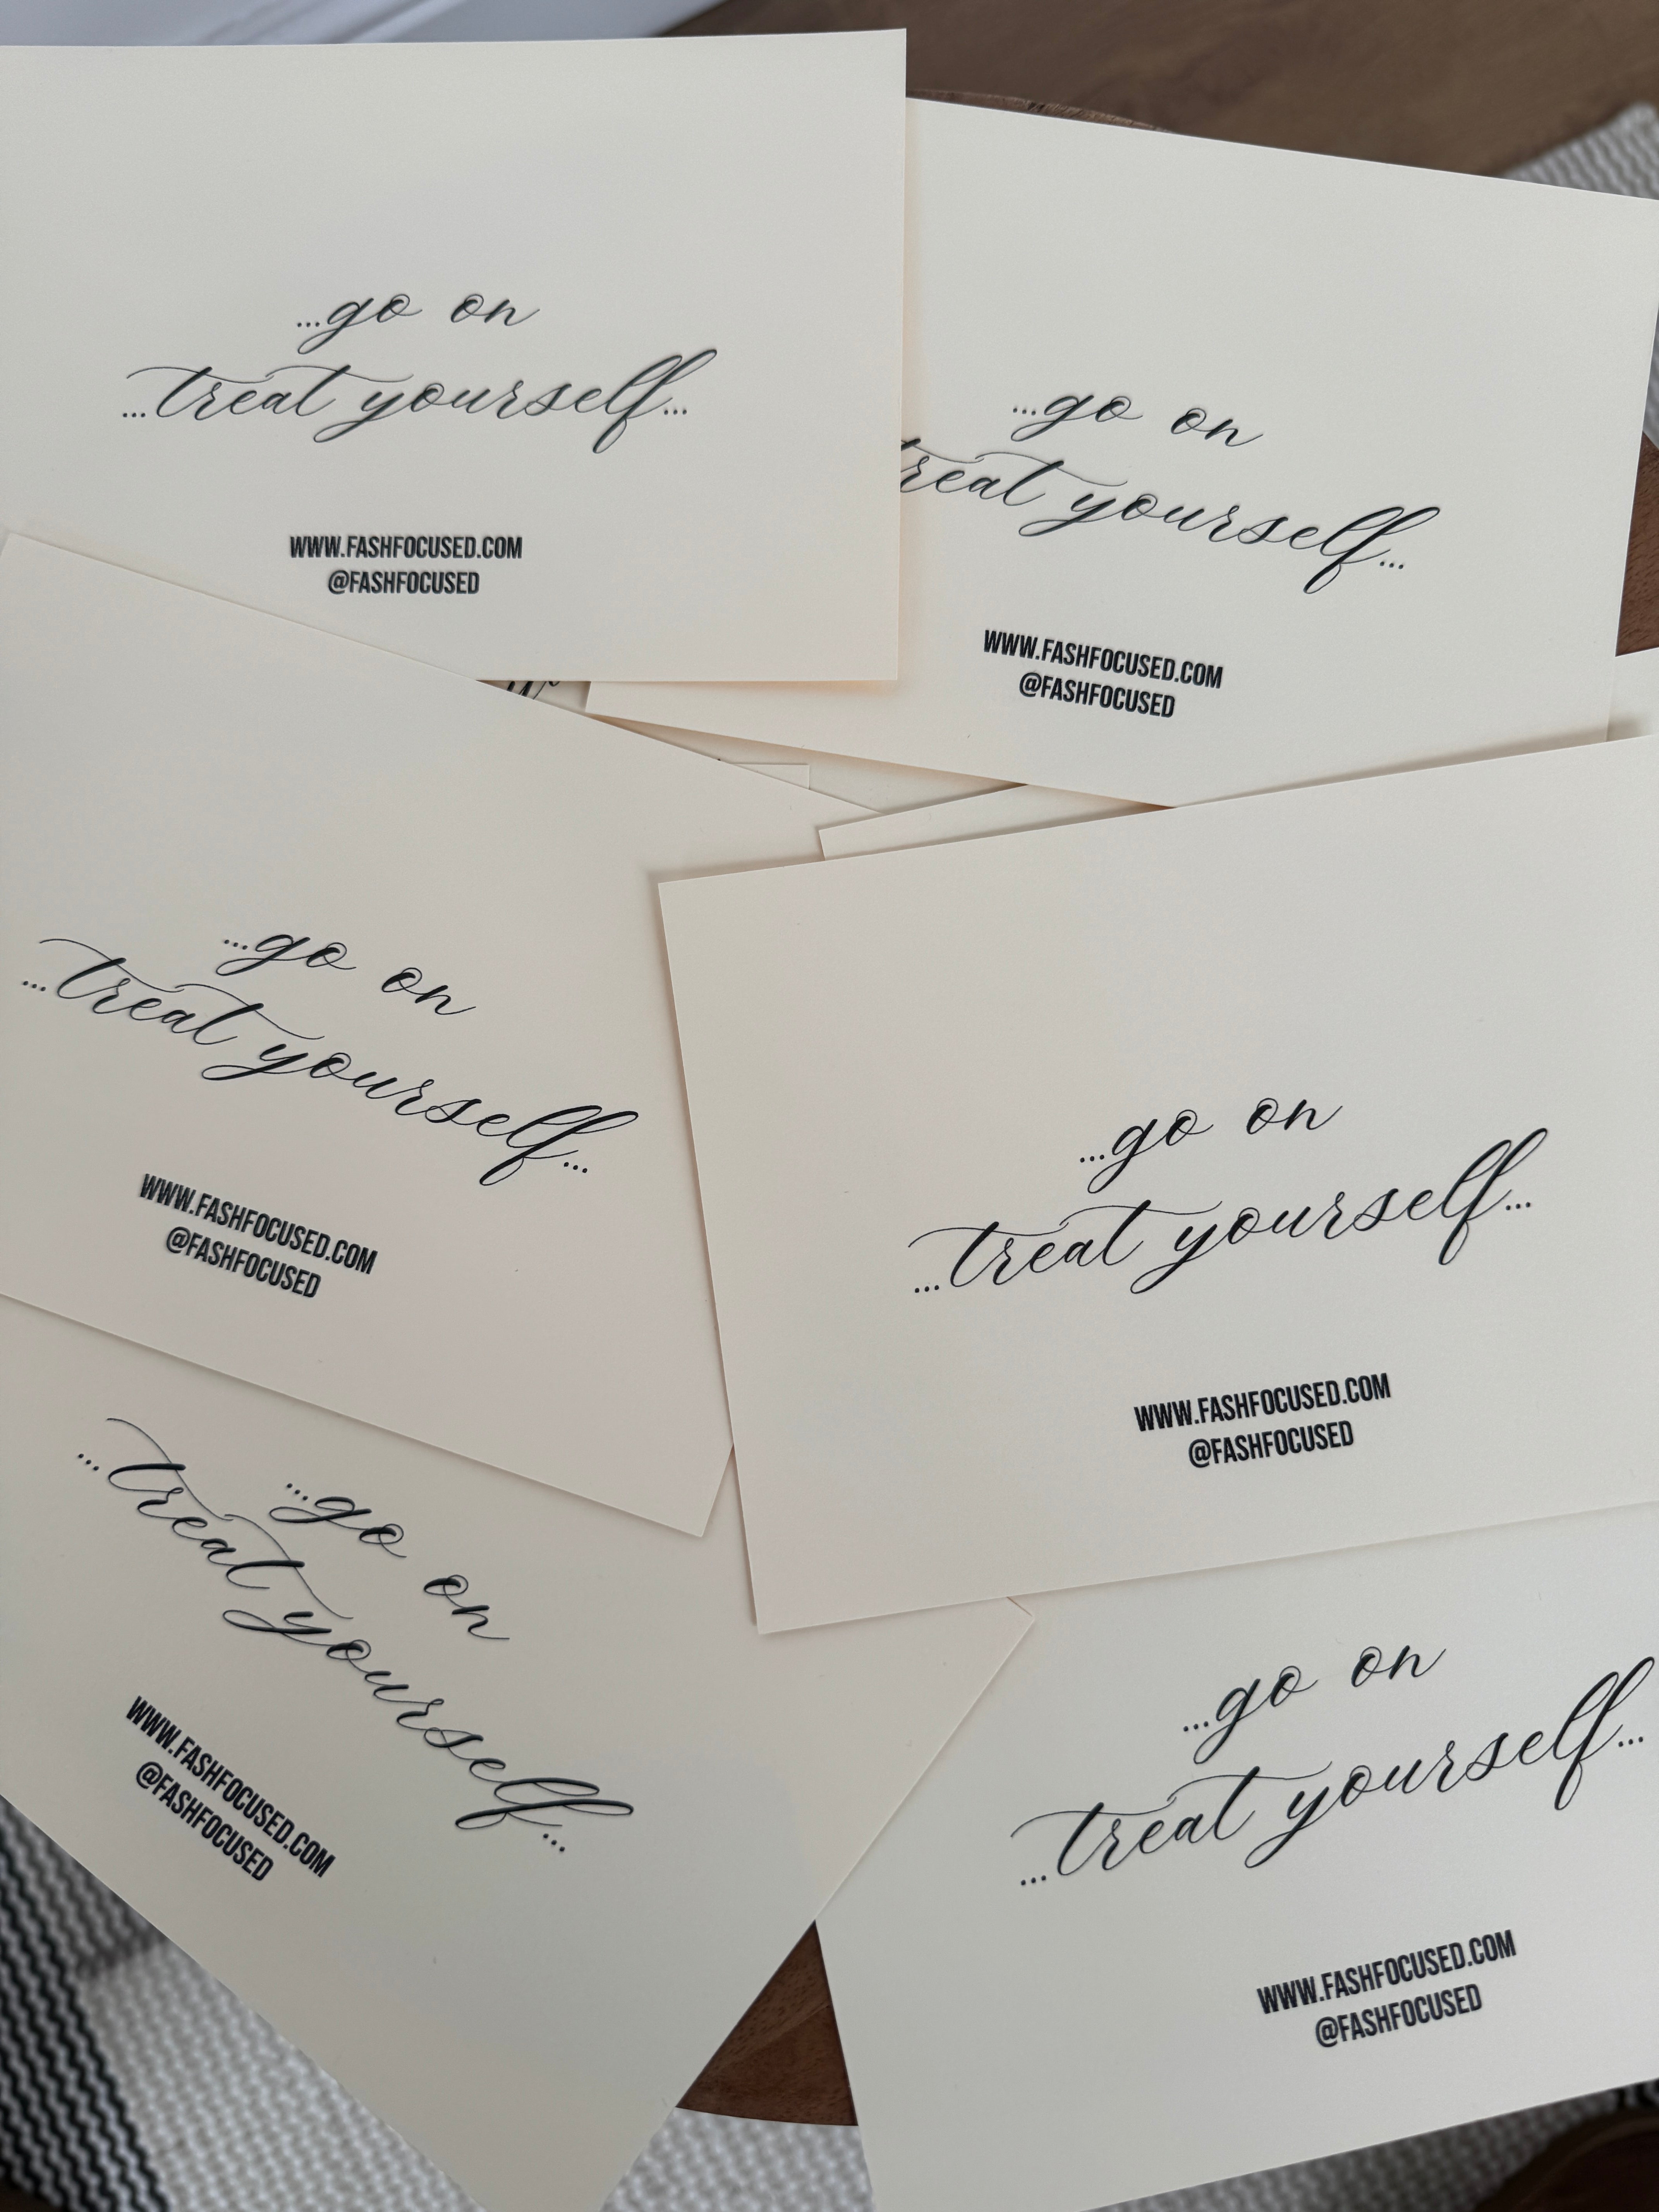 ...go on
...treat yourself...
WWW.FASHFOCUSED.COM
@FASHFOCUSED
...go on
treat yourself...
WWW.FASHFOCUSED.COM
@FASHFOCUSED
...go on
...treat yourself...
WWW.FASHFOCUSED.COM
@FASHFOCUSED
...go on
...treat yourself...
WWW.FASHFOCUSED.COM
@FASHFOCUSED
...go on
...treat yourself...
WWW.FASHFOCUSED.COM
@FASHFOCUSED
...go on
...treat yourself...
WWW.FASHFOCUSED.COM
@FASHFOCUSED